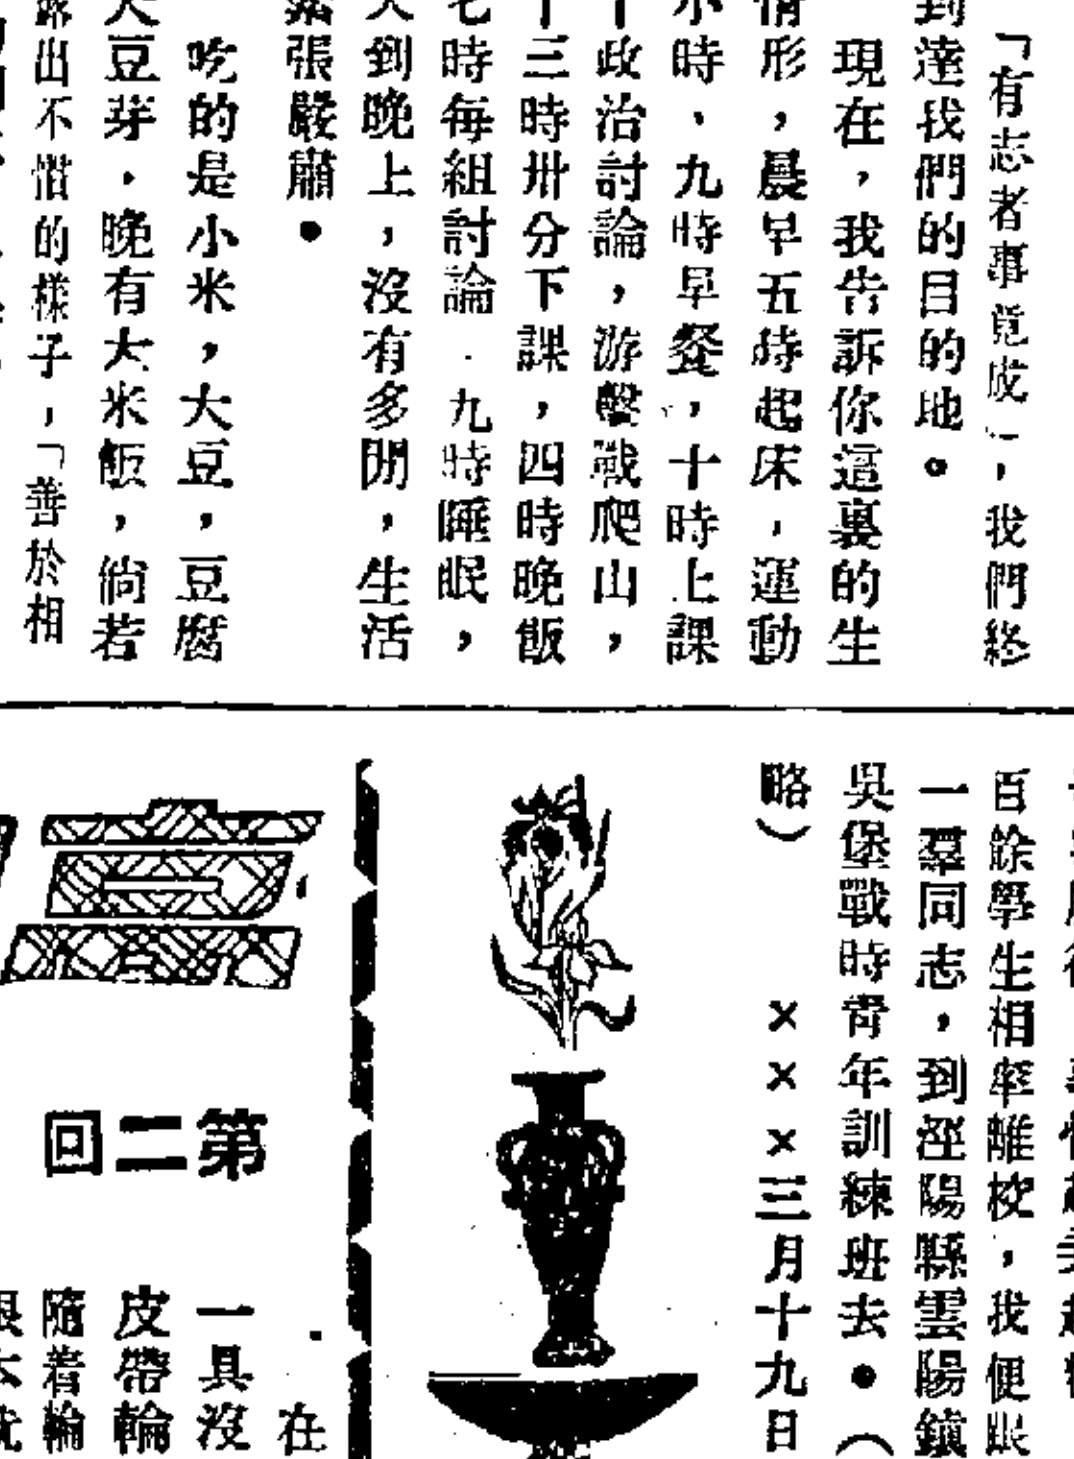 「有志者事竟成」，我們終
到達我們的目的地。
現在，我告訴你這裏的生
情形，晨早五時起床，運動
小時、九時早餐，十時上課
政治討論，游擊戰爬山，
十三時卅分下課，四時晚飯
七時每組討論．九時睡眠，
天到晚上，沒有多閒，生活
緊張嚴肅●
吃的是小米，大豆，豆腐
大豆芽．晚有大米飯，倘若
露出不慣的樣子，「善於相
百餘學生相率離校，我便跟
一羣同志，到涇陽縣雲陽鎮
吳堡戰時青年訓練班去●（
略）　×××三月十九日
第二回
在
一具沒
皮帶輪
隨着輪